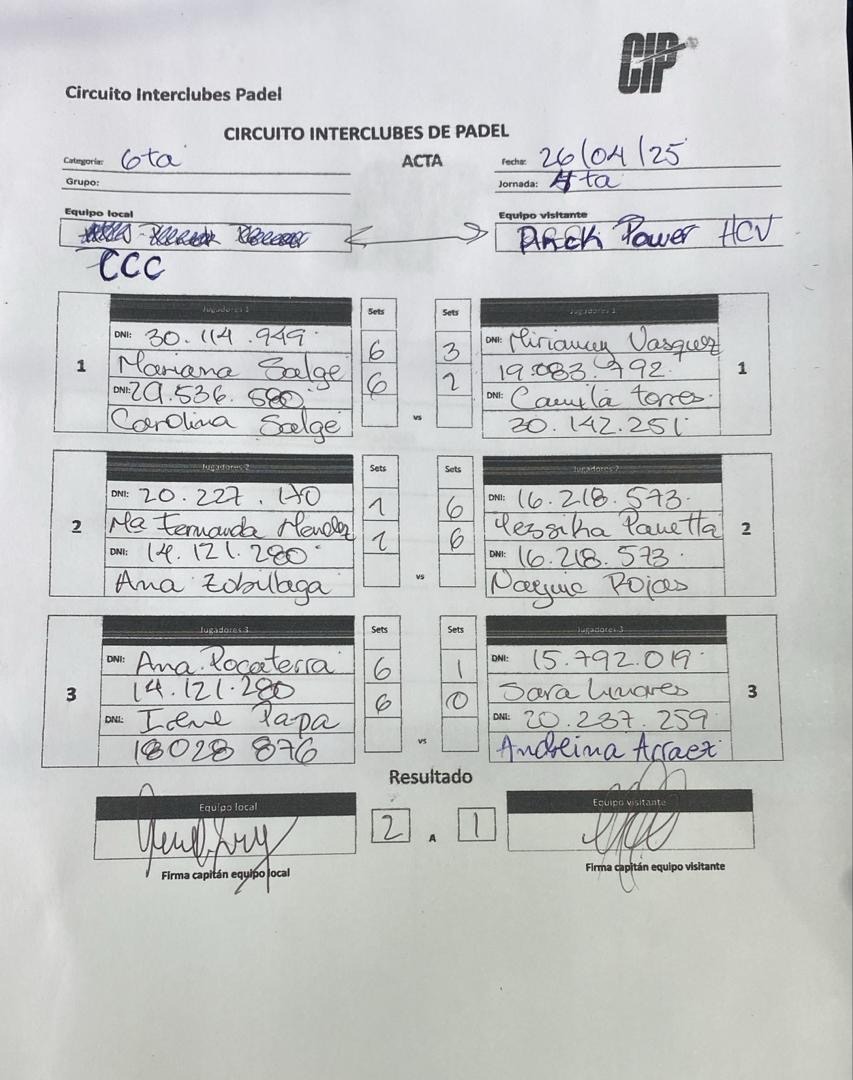 CIP
Circuito Interclubes Padel
CIRCUITO INTERCLUBES DE PADEL
Categoria: 6ta
ACTA
Fecha: 26/04/25
Grupo:
Jornada: 4ta
Equipo local
Equipo visitante
Power HCV
CCC
Jugadores 1 Sets Sets Jugadores 1
1
DNI: 30.114.949
6 3
DNI: Miriamny Vasquez
Mariana Salge
6 2
19.083.792
1
DNI: 29.536.580
DNI: Camila Torres
Carolina Salge
vs
30.142.251
Jugadores 2 Sets Sets Jugadores 2
2
DNI: 20.227.170
1 6
DNI: 16.218.573
Ma Fernanda Mendez
1 6
Yessika Panetta
2
DNI: 14.121.280
DNI: 16.218.573
Ana Zobillaga
vs
Rojas
Jugadores 3 Sets Sets Jugadores 3
3
DNI: Ana Rocaterra
6 1
DNI: 15.792.019
14.121.280
6 0
Sara Linares
3
DNI: Irene Papa
DNI: 20.237.259
18028 876
vs
Andreina Arraez
Resultado
Equipo local
Equipo visitante
2 A 1
Firma capitán equipo local
Firma capitán equipo visitante